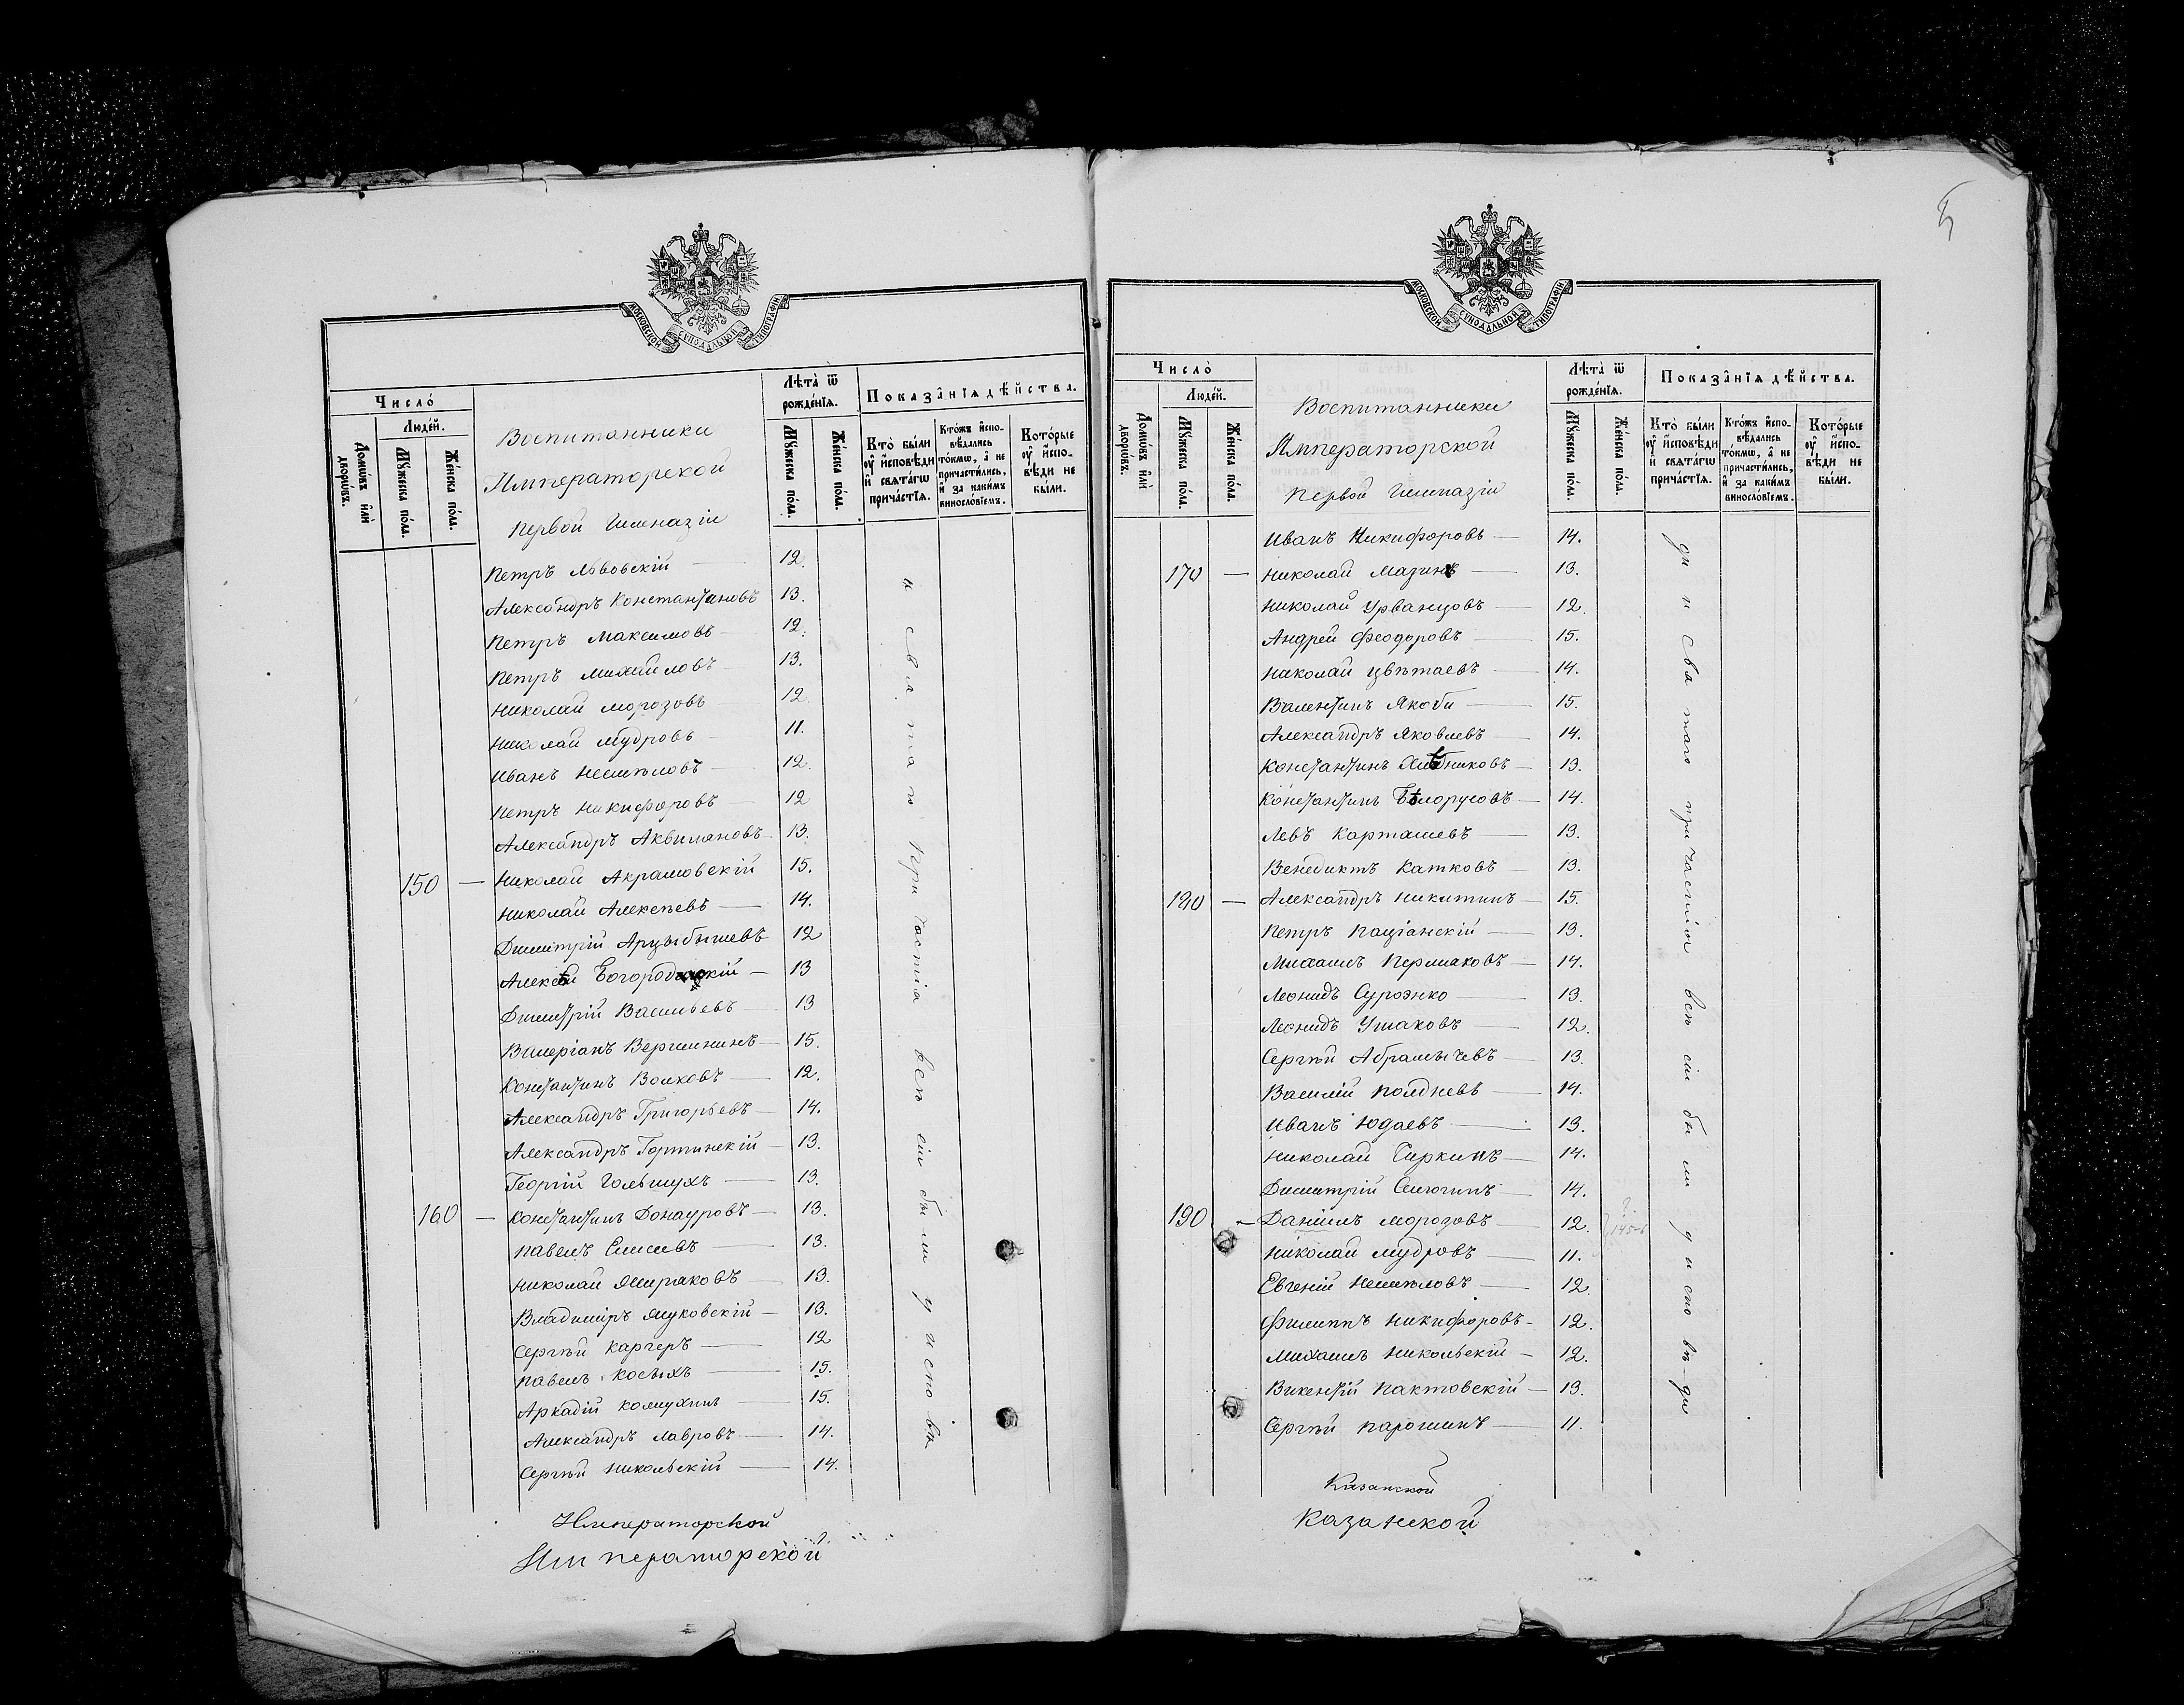 МОСКОВСКОЙ СѴНОДАЛЬНОЙ ТИПОГРАФІИ
Число̀
Люде́й.
Домѡ́въ и҆лѝ дворѡ́въ.
Мꙋ́жеска по́ла.
Же́нска по́ла.
Воспитанники
Императорской
Первой Гимназіи
Лѣта̀ ѿ рожде́нїѧ.
Мꙋ́жеска по́ла.
Же́нска по́ла.
Показа̑нїѧ дѣ́йства.
Кто̀ бы́ли ᲂу҆ и҆сповѣди и҆ свѧта́гѡ прича́стїѧ.
Кто́жъ и҆спо-
вѣдались
то́кмѡ, а҆ не
причасти́лись,
и҆ за каки́мъ
винослові́емъ.
Кото́рые
ᲂу҆ и҆спо-
вѣди не
бы́ли.
Петръ Львовскій — 12.
Александръ Константиновъ 13.
Петръ Максимовъ — 12.
Петръ Михайловъ — 13.
Николай Морозовъ — 12
Николай Мудровъ — 11.
Иванъ Немѣловъ — 12.
Петръ Никифоровъ 12
Александръ Аквиляновъ 13.
150 — Николай Акрамовскій 15.
Николай Алексѣевъ — 14.
Димитрій Арцыбышевъ 12
Алексѣй Богородицкій — 13
Димитрій Васильевъ 13
Валеріанъ Вершининъ — 15.
Константинъ Волковъ — 12.
Александръ Григорьевъ — 14.
Александръ Гортинскій — 13.
Георгій Гольшухъ — 13.
160 — Константинъ Донауровъ — 13.
Павелъ Елисеевъ — 13.
Николай Ямираковъ 13.
Владиміръ Жуковскій — 13.
Сергѣй Каргеръ — 12
Павелъ Косыхъ — 15.
Аркадій Колмухинъ — 15.
Александръ Лавровъ — 14.
Сергѣй Никольскій — 14.
и святаго причастія всѣ сіи были у исповѣ
Императорской
Императорской
МОСКОВСКОЙ СѴНОДАЛЬНОЙ ТИПОГРАФІИ
Число̀
Люде́й.
Домѡ́въ и҆лѝ дворѡ́въ.
Мꙋ́жеска по́ла.
Же́нска по́ла.
Воспитанники
Императорской
Первой Гимназіи
Лѣта̀ ѿ рожде́нїѧ.
Мꙋ́жеска по́ла.
Же́нска по́ла.
Показа̑нїѧ дѣ́йства.
Кто̀ бы́ли
ᲂу҆ и҆сповѣди
и҆ свѧта́гѡ
прича́стїѧ.
Кто́жъ и҆спо-
вѣдались
то́кмѡ, а҆ не
причасти́лись,
и҆ за каки́мъ
винослові́емъ.
Кото́рые
ᲂу҆ и҆спо-
вѣди не
бы́ли.
Иванъ Никифоровъ — 14.
170 — Николай Мазинъ — 13.
Николай Урванцовъ — 12.
Андрей Феодоровъ — 15.
Николай Цвѣтаевъ — 14.
Валентинъ Якоби — 15.
Александръ Яковлевъ — 14.
Константинъ Хлѣбниковъ — 13.
Константинъ Бѣлорусовъ — 14.
Левъ Карташевъ — 13.
Венедиктъ Катковъ — 13.
180 — Александръ Никитинъ — 15.
Петръ Паціанскій — 13.
Михаилъ Пермяковъ — 14.
Леонидъ Суроэнко — 13.
Леонидъ Ушаковъ — 12.
Сергѣй Абрамычевъ — 13.
Василій Полдневъ — 14.
Иванъ Юдаевъ — 13.
Николай Чиркинъ — 14.
Димитрій Смогинъ — 14.
190 — Даніилъ Морозовъ — 12.
Николай Мудровъ — 11.
Евгеній Немѣловъ — 12.
Филиппъ Никифоровъ — 12.
Михаилъ Никольскій — 12.
Викентій Пактовскій — 13.
Сергѣй Парошинъ — 11.
ди и святаго причастія всѣ сіи были у исповѣ-ди
Казанской
Казанской